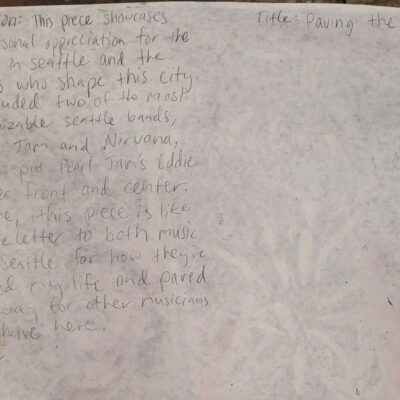 on: This piece showcases
sonal appreciation for the
in seattle and the
who shape this city.
uded two of the most
nizable seattle bands,
Jam and Nirvana,
put Pearl Jam's Eddie
er front and center.
e, this piece is like
e letter to both music
Seattle for how they've
ed my life and paved
way for other musicians
thrive here.
Title: Paving the